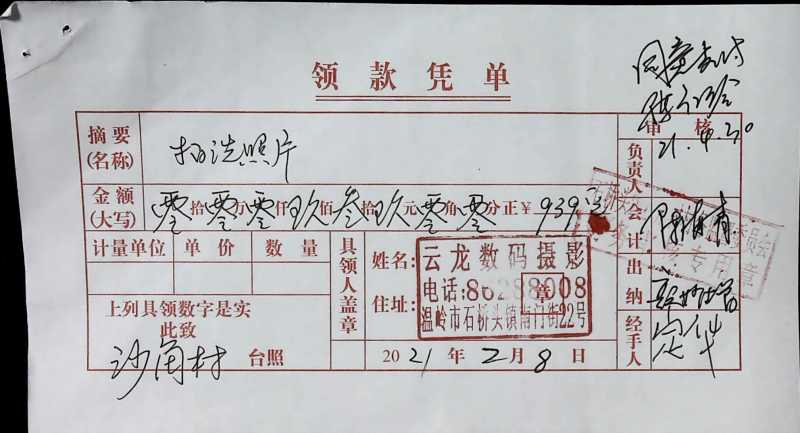 同意支付
21.4.20
领款凭单
审核
摘要
(名称)
拍洗照片
负责人
金额
(大写)
零拾零万零仟玖佰叁拾玖元零角零分正¥939
会计
计量单位
单价
数量
具领人盖章
姓名:
云龙数码摄影
电话:86288008
章
住址:
温岭市石桥头镇南门街22号
专用章
出纳
上列具领数字是实
此致
沙角村 台照
2021年2月8日
经手人